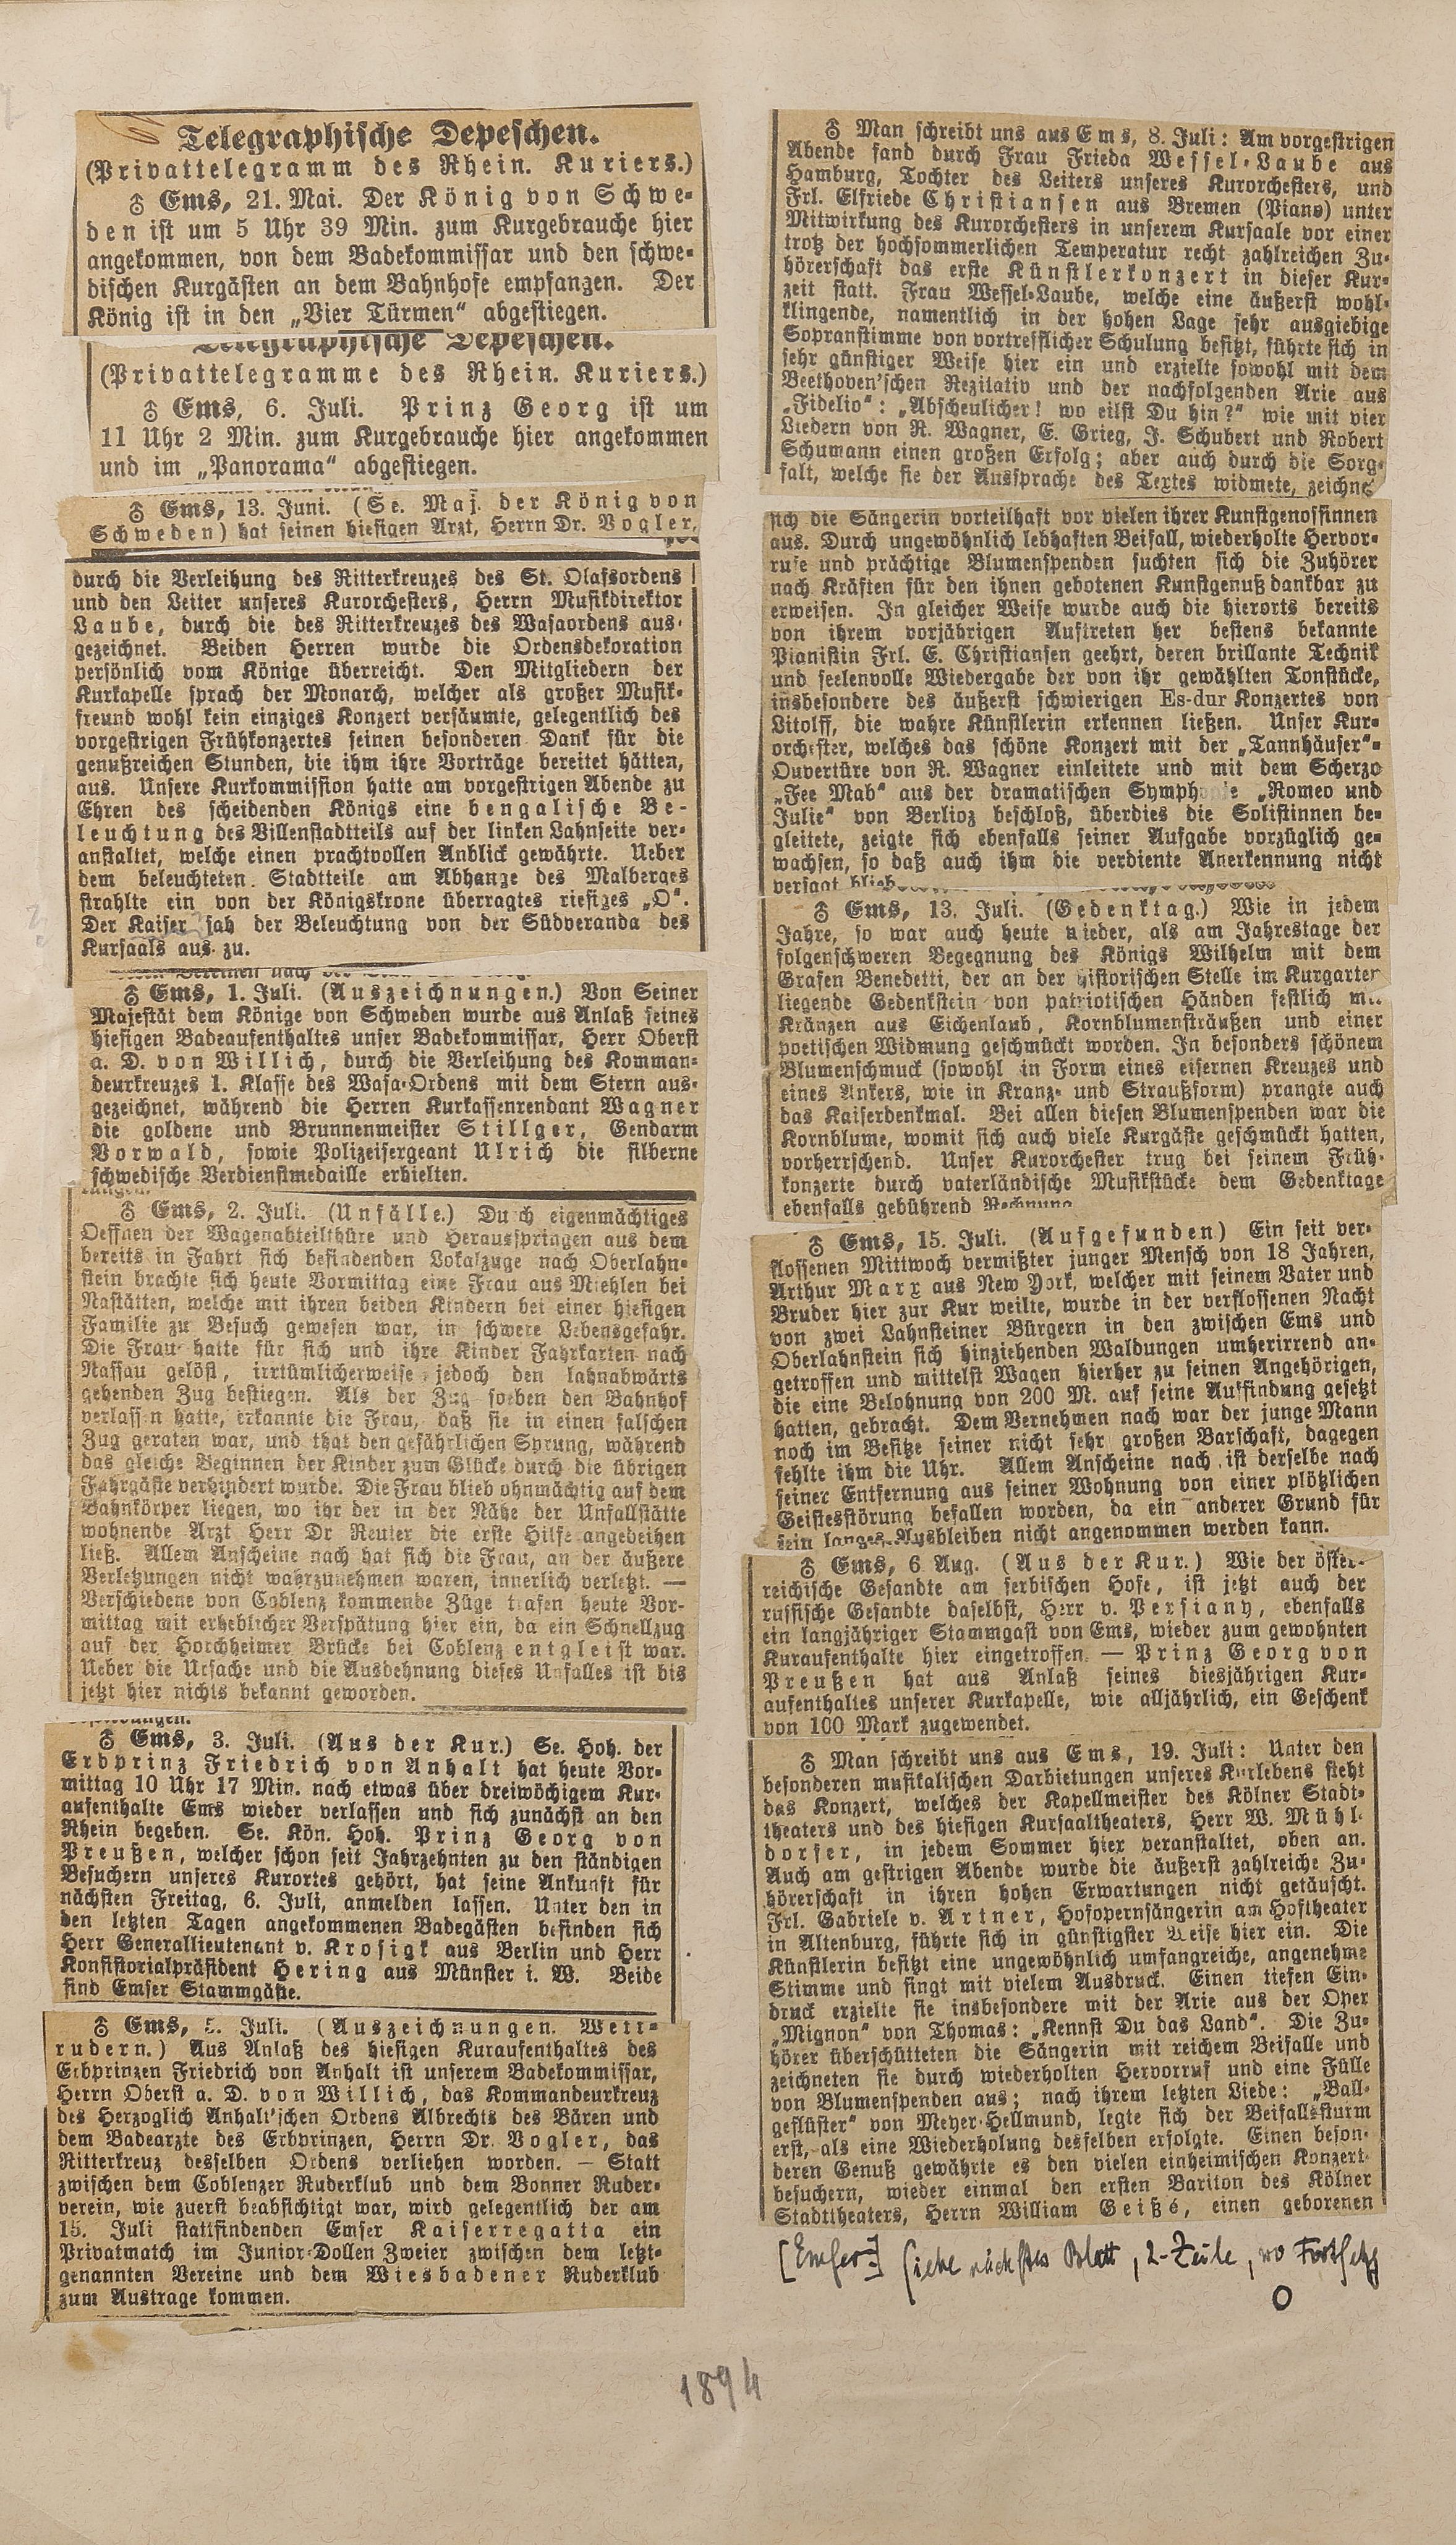 Telegraphische Depeschen.
(Privattelegramm des Rhein. Kuriers.)
♁ Ems, 21. Mai. Der König von Schwe-
den ist um 5 Uhr 39 Min. zum Kurgebrauche hier
angekommen, von dem Badekommissar und den schwe-
dischen Kurgästen an dem Bahnhofe empfangen. Der
König ist in den „Vier Türmen“ abgestiegen.
Telegraphische Depeschen.
(Privattelegramme des Rhein. Kuriers.)
♁ Ems, 6. Juli. Prinz Georg ist um
11 Uhr 2 Min. zum Kurgebrauche hier angekommen
und im „Panorama“ abgestiegen.
♁ Ems, 13. Juni. (Se. Maj. der König von
Schweden) hat seinen hiesigen Arzt, Herrn Dr. Vogler,
durch die Verleihung des Ritterkreuzes des St. Olafsordens
und den Leiter unseres Kurorchesters, Herrn Musikdirektor
Laube, durch die des Ritterkreuzes des Wasaordens aus-
gezeichnet. Beiden Herren wurde die Ordensdekoration
persönlich vom Könige überreicht. Den Mitgliedern der
Kurkapelle sprach der Monarch, welcher als großer Musik-
freund wohl kein einziges Konzert versäumte, gelegentlich des
vorgestrigen Frühkonzertes seinen besonderen Dank für die
genußreichen Stunden, die ihm ihre Vorträge bereitet hätten,
aus. Unsere Kurkommission hatte am vorgestrigen Abende zu
Ehren des scheidenden Königs eine bengalische Be-
leuchtung des Villenstadtteils auf der linken Lahnseite ver-
anstaltet, welche einen prachtvollen Anblick gewährte. Ueber
dem beleuchteten Stadtteile am Abhange des Malberges
strahlte ein von der Königskrone überragtes riesiges „O“.
Der Kaiser sah der Beleuchtung von der Südveranda des
Kursaals aus zu.
♁ Ems, 1. Juli. (Auszeichnungen.) Von Seiner
Majestät dem Könige von Schweden wurde aus Anlaß seines
hiesigen Badeaufenthaltes unser Badekommissar, Herr Oberst
a. D. von Willich, durch die Verleihung des Komman-
deurkreuzes 1. Klasse des Wasa-Ordens mit dem Stern aus-
gezeichnet, während die Herren Kurkassenrendant Wagner
die goldene und Brunnenmeister Stillger, Gendarm
Vorwald, sowie Polizeisergeant Ulrich die silberne
schwedische Verdienstmedaille erhielten.
♁ Ems, 2. Juli. (Unfälle.) Durch eigenmächtiges
Oeffnen der Wagenabteilthüre und Herausspringen aus dem
bereits in Fahrt sich befindenden Lokalzuge nach Oberlahn-
stein brachte sich heute Vormittag eine Frau aus Miehlen bei
Nastätten, welche mit ihren beiden Kindern bei einer hiesigen
Familie zu Besuch gewesen war, in schwere Lebensgefahr.
Die Frau hatte für sich und ihre Kinder Fahrkarten nach
Nassau gelöst, irrtümlicherweise jedoch den lahnabwärts
gehenden Zug bestiegen. Als der Zug soeben den Bahnhof
verlassen hatte, erkannte die Frau, daß sie in einen falschen
Zug geraten war, und that den gefährlichen Sprung, während
das gleiche Beginnen der Kinder zum Glücke durch die übrigen
Fahrgäste verhindert wurde. Die Frau blieb ohnmächtig auf dem
Bahnkörper liegen, wo ihr der in der Nähe der Unfallstätte
wohnende Arzt Herr Dr Reuter die erste Hilfe angedeihen
ließ. Allem Anscheine nach hat sich die Frau, an der äußere
Verletzungen nicht wahrzunehmen waren, innerlich verletzt. —
Verschiedene von Coblenz kommende Züge trafen heute Vor-
mittag mit erheblicher Verspätung hier ein, da ein Schnellzug
auf der Horchheimer Brücke bei Coblenz entgleist war.
Ueber die Ursache und die Ausdehnung dieses Unfalles ist bis
jetzt hier nichts bekannt geworden.
♁ Ems, 3. Juli. (Aus der Kur.) Se. Hoh. der
Erbprinz Friedrich von Anhalt hat heute Vor-
mittag 10 Uhr 17 Min. nach etwas über dreiwöchigem Kur-
aufenthalte Ems wieder verlassen und sich zunächst an den
Rhein begeben. Se. Kön. Hoh. Prinz Georg von
Preußen, welcher schon seit Jahrzehnten zu den ständigen
Besuchern unseres Kurortes gehört, hat seine Ankunft für
nächsten Freitag, 6. Juli, anmelden lassen. Unter den in
den letzten Tagen angekommenen Badegästen befinden sich
Herr Generallieutenant v. Krosigk aus Berlin und Herr
Konsistorialpräsident Hering aus Münster i. W. Beide
sind Emser Stammgäste.
♁ Ems, 5. Juli. (Auszeichnungen. Wett-
rudern.) Aus Anlaß des hiesigen Kuraufenthaltes des
Erbprinzen Friedrich von Anhalt ist unserem Badekommissar,
Herrn Oberst a. D. von Willich, das Kommandeurkreuz
des Herzoglich Anhalt'schen Ordens Albrechts des Bären und
dem Badearzte des Erbprinzen, Herrn Dr. Vogler, das
Ritterkreuz desselben Ordens verliehen worden. — Statt
zwischen dem Coblenzer Ruderklub und dem Bonner Ruder-
verein, wie zuerst beabsichtigt war, wird gelegentlich der am
15. Juli stattfindenden Emser Kaiserregatta ein
Privatmatch im Junior-Dollen Zweier zwischen dem letzt-
genannten Vereine und dem Wiesbadener Ruderklub
zum Austrage kommen.
♁ Man schreibt uns aus Ems, 8. Juli: Am vorgestrigen
Abende fand durch Frau Frieda Wessel-Laube aus
Hamburg, Tochter des Leiters unseres Kurorchesters, und
Frl. Elfriede Christiansen aus Bremen (Piano) unter
Mitwirkung des Kurorchesters in unserem Kursaale vor einer
trotz der hochsommerlichen Temperatur recht zahlreichen Zu-
hörerschaft das erste Künstlerkonzert in dieser Kur-
zeit statt. Frau Wessel-Laube, welche eine äußerst wohl-
klingende, namentlich in der hohen Lage sehr ausgiebige
Sopranstimme von vortrefflicher Schulung besitzt, führte sich in
sehr günstiger Weise hier ein und erzielte sowohl mit dem
Beethoven'schen Rezitativ und der nachfolgenden Arie aus
„Fidelio“: „Abscheulicher! wo eilst Du hin?“ wie mit vier
Liedern von R. Wagner, E. Grieg, J. Schubert und Robert
Schumann einen großen Erfolg; aber auch durch die Sorg-
falt, welche sie der Aussprache des Textes widmete, zeichne
sich die Sängerin vorteilhaft vor vielen ihrer Kunstgenossinnen
aus. Durch ungewöhnlich lebhaften Beifall, wiederholte Hervor-
rufe und prächtige Blumenspenden suchten sich die Zuhörer
nach Kräften für den ihnen gebotenen Kunstgenuß dankbar zu
erweisen. In gleicher Weise wurde auch die hierorts bereits
von ihrem vorjährigen Auftreten her bestens bekannte
Pianistin Frl. E. Christiansen geehrt, deren brillante Technik
und seelenvolle Wiedergabe der von ihr gewählten Tonstücke,
insbesondere des äußerst schwierigen Es-dur Konzertes von
Litolff, die wahre Künstlerin erkennen ließen. Unser Kur-
orchester, welches das schöne Konzert mit der „Tannhäuser“-
Ouvertüre von R. Wagner einleitete und mit dem Scherzo
„Fee Mab“ aus der dramatischen Symphonie „Romeo und
Julie“ von Berlioz beschloß, überdies die Solistinnen be-
gleitete, zeigte sich ebenfalls seiner Aufgabe vorzüglich ge-
wachsen, so daß auch ihm die verdiente Anerkennung nicht
versagt blieb.
♁ Ems, 13. Juli. (Gedenktag.) Wie in jedem
Jahre, so war auch heute wieder, als am Jahrestage der
folgenschweren Begegnung des Königs Wilhelm mit dem
Grafen Benedetti, der an der historischen Stelle im Kurgarten
liegende Gedenkstein von patriotischen Händen festlich mit
Kränzen aus Eichenlaub, Kornblumensträußen und einer
poetischen Widmung geschmückt worden. In besonders schönem
Blumenschmuck (sowohl in Form eines eisernen Kreuzes und
eines Ankers, wie in Kranz- und Straußform) prangte auch
das Kaiserdenkmal. Bei allen diesen Blumenspenden war die
Kornblume, womit sich auch viele Kurgäste geschmückt hatten,
vorherrschend. Unser Kurorchester trug bei seinem Früh-
konzerte durch vaterländische Musikstücke dem Gedenktage
ebenfalls gebührend Rechnung
♁ Ems, 15. Juli. (Aufgefunden) Ein seit ver-
flossenen Mittwoch vermißter junger Mensch von 18 Jahren,
Arthur Marx aus New York, welcher mit seinem Vater und
Bruder hier zur Kur weilte, wurde in der verflossenen Nacht
von zwei Lahnsteiner Bürgern in den zwischen Ems und
Oberlahnstein sich hinziehenden Waldungen umherirrend an-
getroffen und mittelst Wagen hierher zu seinen Angehörigen,
die eine Belohnung von 200 M. auf seine Auffindung gesetzt
hatten, gebracht. Dem Vernehmen nach war der junge Mann
noch im Besitze seiner nicht sehr großen Barschaft, dagegen
fehlte ihm die Uhr. Allem Anscheine nach ist derselbe nach
seiner Entfernung aus seiner Wohnung von einer plötzlichen
Geistesstörung befallen worden, da ein anderer Grund für
sein langes Ausbleiben nicht angenommen werden kann.
♁ Ems, 6 Aug. (Aus der Kur.) Wie der öster-
reichische Gesandte am serbischen Hofe, ist jetzt auch der
russische Gesandte daselbst, Herr v. Persiany, ebenfalls
ein langjähriger Stammgast von Ems, wieder zum gewohnten
Kuraufenthalte hier eingetroffen. — Prinz Georg von
Preußen hat aus Anlaß seines diesjährigen Kur-
aufenthaltes unserer Kurkapelle, wie alljährlich, ein Geschenk
von 100 Mark zugewendet.
♁ Man schreibt uns aus Ems, 19. Juli: Unter den
besonderen musikalischen Darbietungen unseres Kurlebens steht
das Konzert, welches der Kapellmeister des Kölner Stadt-
theaters und des hiesigen Kursaaltheaters, Herr W. Mühl-
dorfer, in jedem Sommer hier veranstaltet, oben an.
Auch am gestrigen Abende wurde die äußerst zahlreiche Zu-
hörerschaft in ihren hohen Erwartungen nicht getäuscht.
Frl. Gabriele v. Artner, Hofopernsängerin am Hoftheater
in Altenburg, führte sich in günstigster Weise hier ein. Die
Künstlerin besitzt eine ungewöhnlich umfangreiche, angenehme
Stimme und singt mit vielem Ausdruck. Einen tiefen Ein-
druck erzielte sie insbesondere mit der Arie aus der Oper
„Mignon“ von Thomas: „Kennst Du das Land“. Die Zu-
hörer überschütteten die Sängerin mit reichem Beifalle und
zeichneten sie durch wiederholten Hervorruf und eine Fülle
von Blumenspenden aus; nach ihrem letzten Liede: „Ball-
geflüster“ von Meyer-Hellmund, legte sich der Beifallssturm
erst, als eine Wiederholung desselben erfolgte. Einen beson-
deren Genuß gewährte es den vielen einheimischen Konzert-
besuchern, wieder einmal den ersten Bariton des Kölner
Stadttheaters, Herrn William Geißé, einen geborenen
[Emser] siehe nächstes Blatt, 2-Zeile, wo Fortsetz
O
1894